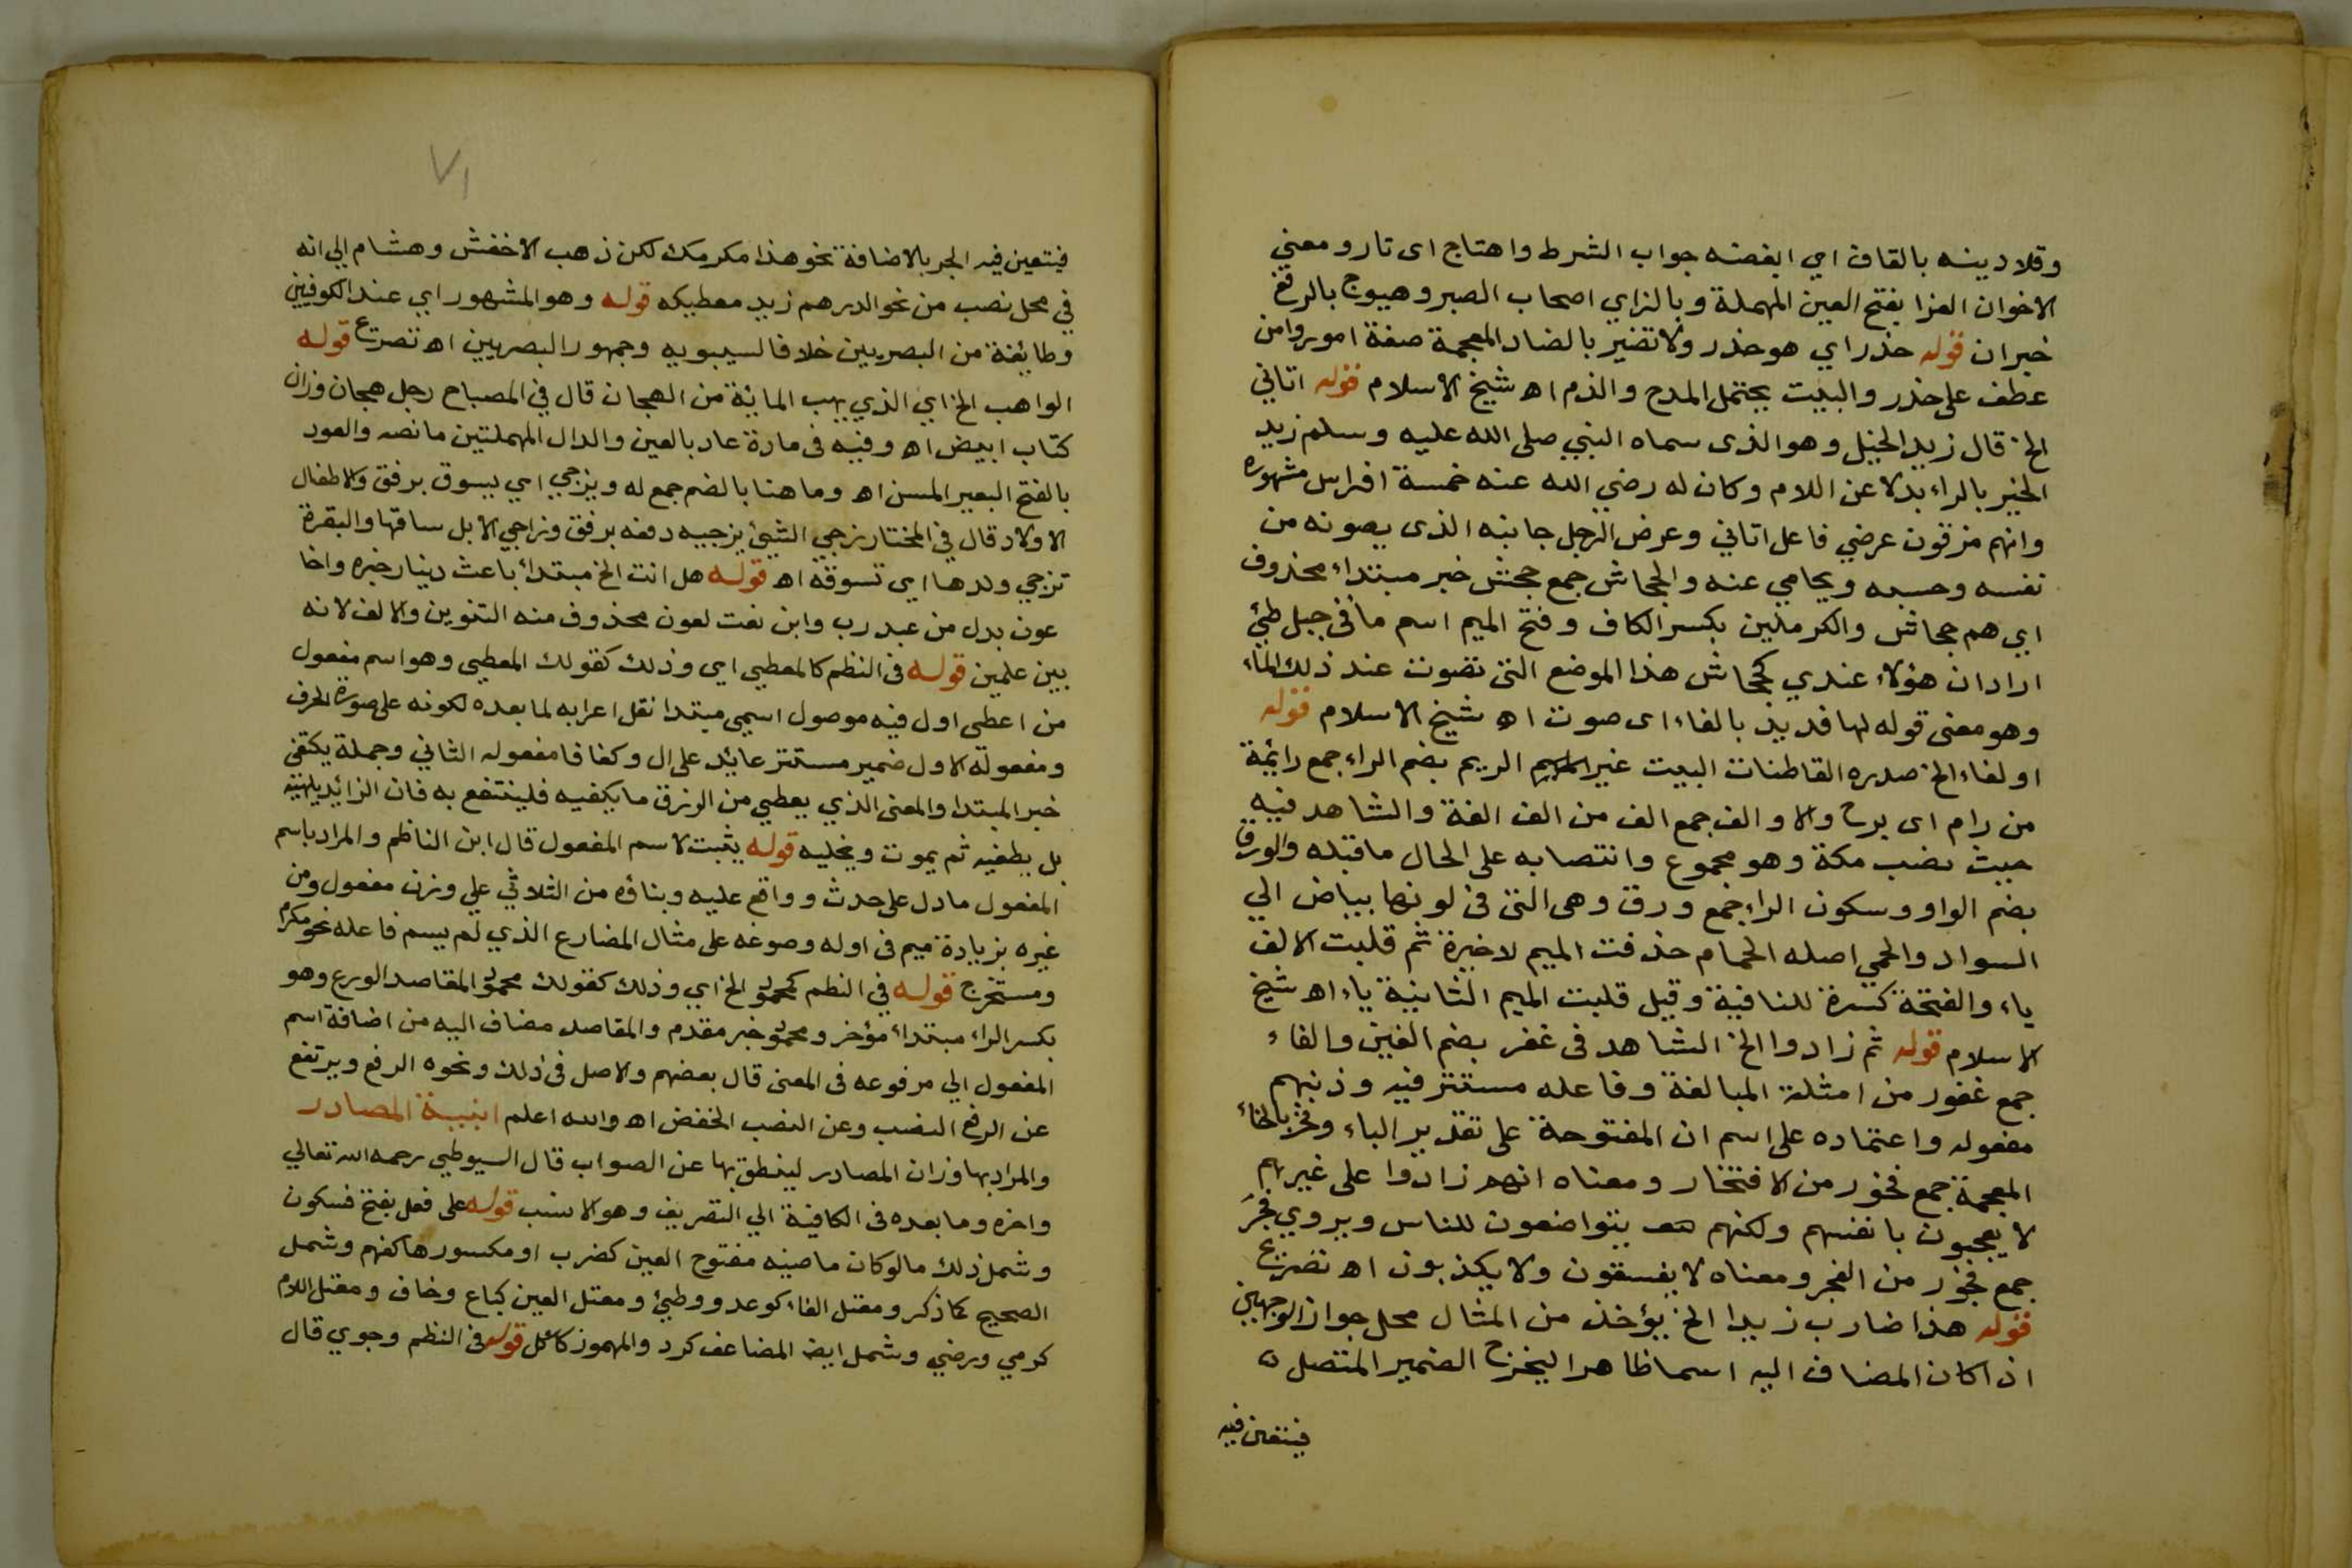 وقلا دينه بالقاف اي ابغضه جواب الشرط واهتاج اى ثار ومعني
الاخوان العزا بفتح العين المهملة وبالزاي اصحاب الصبر وهيوج بالرفع
خبران قوله حذر اي هو حذر ولا تضير بالضاد المعجمة صفة امور وامن
عطف على حذر والبيت يحتمل المدح والذم اه شيخ الاسلام قوله اتاني
الخ قال زيد الخيل وهو الذى سماه النبي صلى الله عليه وسلم زيد
الخير بالراء بدلا عن اللام وكان له رضي الله عنه خمسة افراس مشهوره
وانهم مزقون عرضي فاعل اتاني وعرض الرجل جانبه الذى يصونه من
نفسه وحسبه ويحامي عنه والجحاش جمع جحش خبر مبتداء محذوف
اي هم جحاش والكرملين بكسر الكاف وفتح الميم اسم ماء في جبل طيئ
اراد ان هؤلاء عندي كجحاش هذا الموضع التى تصوت عند ذلك الماء
وهو معنى قوله لها فديد بالفاء اى صوت اه شيخ الاسلام قوله
اولفاء الخ صدره القاطنات البيت غير الريم بضم الراء جمع رائمة
من رام اى برح والاوالف جمع الف من الف الفة والشاهد فيه
حيث نصب مكة وهو مجموع وانتصابه على الحال ما قبله والورق
بضم الواو وسكون الراء جمع ورق وهى التى فى لونها بياض الي
السواد والحمي اصله الحمام حذفت الميم لاخيرة ثم قلبت الالف
ياء والفتحة كسرة للنافية وقيل قلبت الميم الثانية ياء اه شيخ
الاسلام قوله ثم زادوا الخ الشاهد فى غفر بضم الغين والفاء
جمع غفور من امثلة المبالغة وفاعله مستتر فيه وذنبهم
مفعوله واعتماده على اسم ان المفتوحة على تقدير الباء وفخر بالخاء
المعجمة جمع فخور من الافتخار ومعناه انهم زادوا على غيرهم
لا يعجبون بانفسهم ولكنهم يتواضعون للناس ويروي فجر
جمع فجور من الفجر ومعناه لا يفسقون ولا يكذبون اه تصريح
قوله هذا ضارب زيدا الخ يؤخذ من المثال محل جواز الوجهين
اذا كان المضاف اليه اسما ظاهرا ليخرج الضمير المتصل
فيتعين فيه
٧١
فيتعين فيه الجر بالاضافة نحو هذا مكرمك لكن ذهب الاخفش وهشام الي انه
في محل نصب من نحو الدرهم زيد معطيكه قوله وهو المشهور اي عند الكوفيين
وطايفة من البصريين خلافا لسيبويه وجمهور البصريين اه تصريح قوله
الواهب الخ اي الذي يهب المائة من الهجان قال في المصباح رجل هجان وزان
كتاب ابيض اه وفيه فى مادة عاد بالعين والدال المهملتين ما نصه والعود
بالفتح البعير المسن اه وما هنا بالضم جمع له ويزجي اي يسوق برفق والاطفال
الاولاد قال في المختار زجي الشيئ يزجيه دفعه برفق وزاجي الابل ساقها والبقرة
تزجي ولدها اي تسوقه اه قوله هل انت الخ مبتدأ باعث دينار خبره واخا
عون بدل من عبد رب وابن نعت لعون محذوف منه التنوين والالف لانه
بين علمين قوله فى النظم كالمعطي اي وذلك كقولك المعطي وهو اسم مفعول
من اعطى اول فيه موصول اسمي مبتدا نقل اعرابه لما بعده لكونه على صورة الحرف
ومفعوله الاول ضمير مستتر عائد على ال وكفافا مفعوله الثاني وجملة يكتفي
خبر المبتدا والمعنى الذي يعطي من الرزق ما يكفيه فلينتفع به فان الزائد يلهيه
بل يطغيه ثم يموت ويخليه قوله يثبت لاسم المفعول قال ابن الناظم والمراد باسم
المفعول ما دل على حدث وواقع عليه وبناؤه من الثلاثي علي وزن مفعول ومن
غيره بزيادة ميم فى اوله وصوغه على مثال المضارع الذي لم يسم فاعله نحو مكرم
ومستخرج قوله في النظم كمحمود الخ اي وذلك كقولك محمود المقاصد الورع وهو
بكسر الراء مبتداء مؤخر ومحمود خبر مقدم والمقاصد مضاف اليه من اضافة اسم
المفعول الي مرفوعه فى المعنى قال بعضهم والاصل فى ذلك ونحوه الرفع ويرتفع
عن الرفع النصب وعن النصب الخفض اه والله اعلم ابنية المصادر
والمراد بها وزان المصادر لينطق بها عن الصواب قال السيوطي رحمه الله تعالي
واخره وما بعده فى الكافية الي التصريف وهو الانسب قوله على فعل بفتح فسكون
وشمل ذلك ما لو كان ماضيه مفتوح العين كضرب او مكسورها كفهم وشمل
الصحيح كما ذكر ومعتل الفاء كوعد ووطيئ ومعتل العين كباع وخاف ومعتل اللام
كرمي ورضي وشمل ايضا المضاعف كرد والمهموز كاكل قوله فى النظم وجوي قال